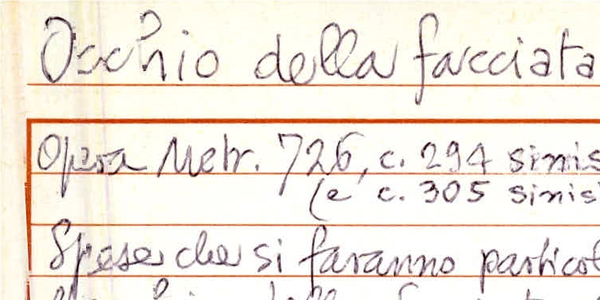 Occhio della facciata
Opera Metr. 726, c. 294 sinis
(e c. 305 sinis
Spese che si faranno particol